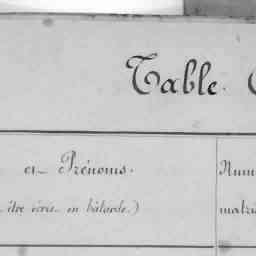 Table.
et Prénoms.
être écris en bâtarde.)
Num
matri